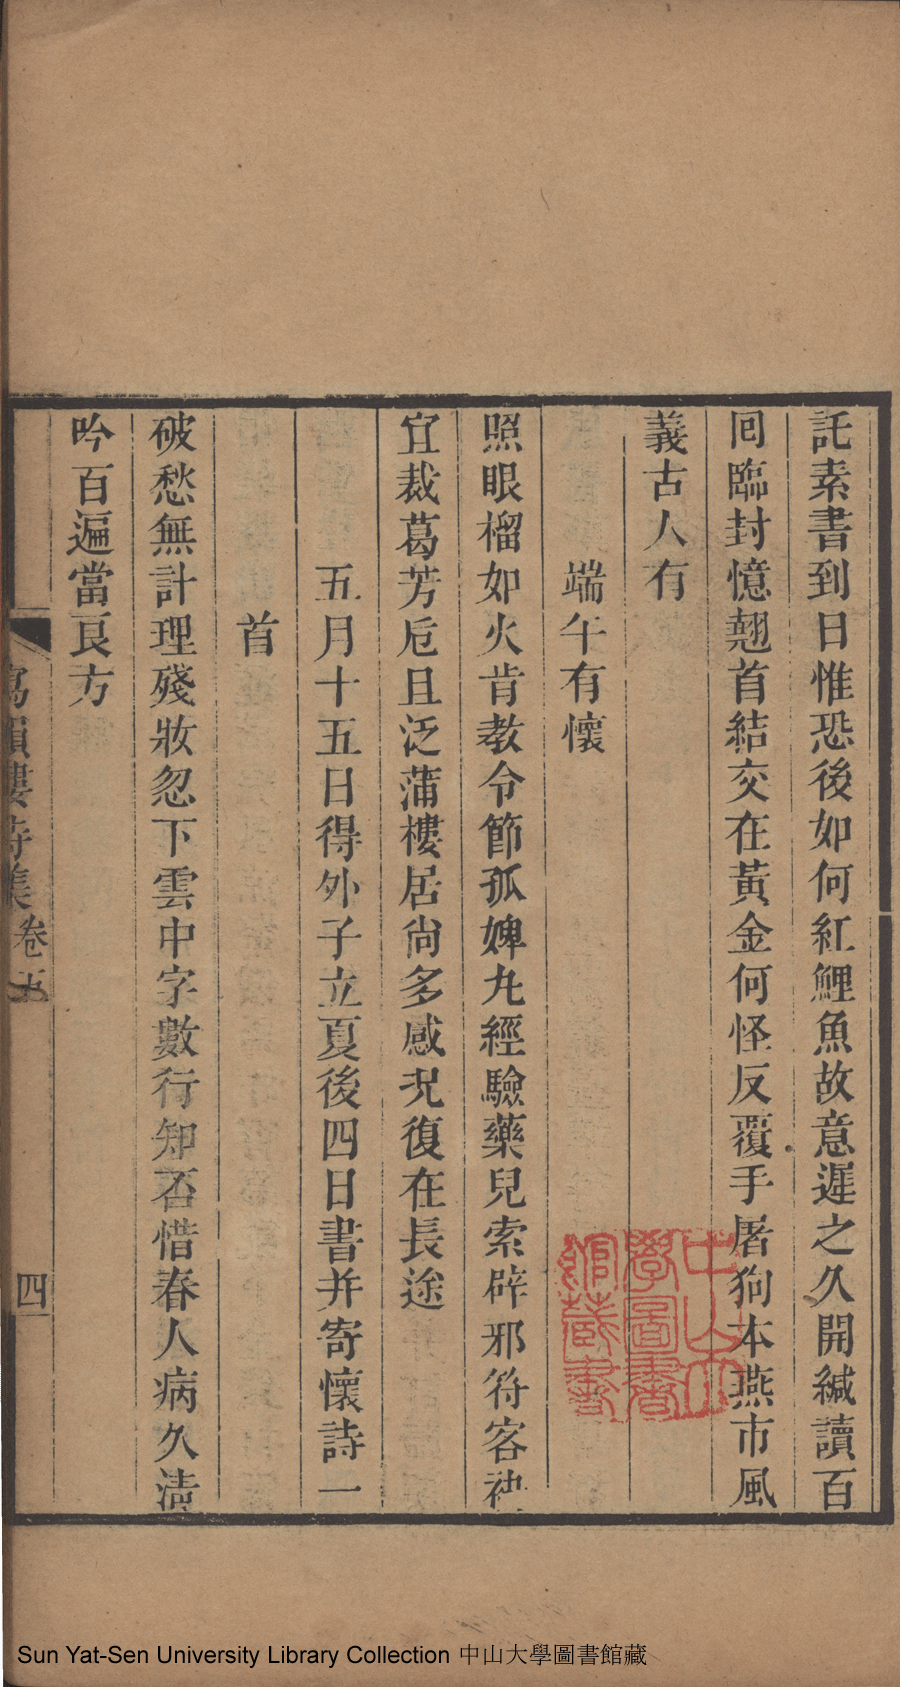 託素書到日惟恐後如何紅鯉魚故意遲之久開緘讀百
回臨封憶翹首結交在黃金何怪反覆手屠狗本燕市風
義古人有
端午有懷
照眼榴如火肯教令節孤婢丸經驗藥兒索辟邪符客袂
宜裁葛芳卮且泛蒲樓居尙多感况復在長途
五月十五日得外子立夏後四日書并寄懷詩一
首
破愁無計理殘妝忽下雲中字數行知否惜春人病久淸
吟百遍當良方
寫韻樓詩集
卷五
四
中山大
學圖書
館藏書
Sun Yat-Sen University Library Collection 中山大學圖書館藏